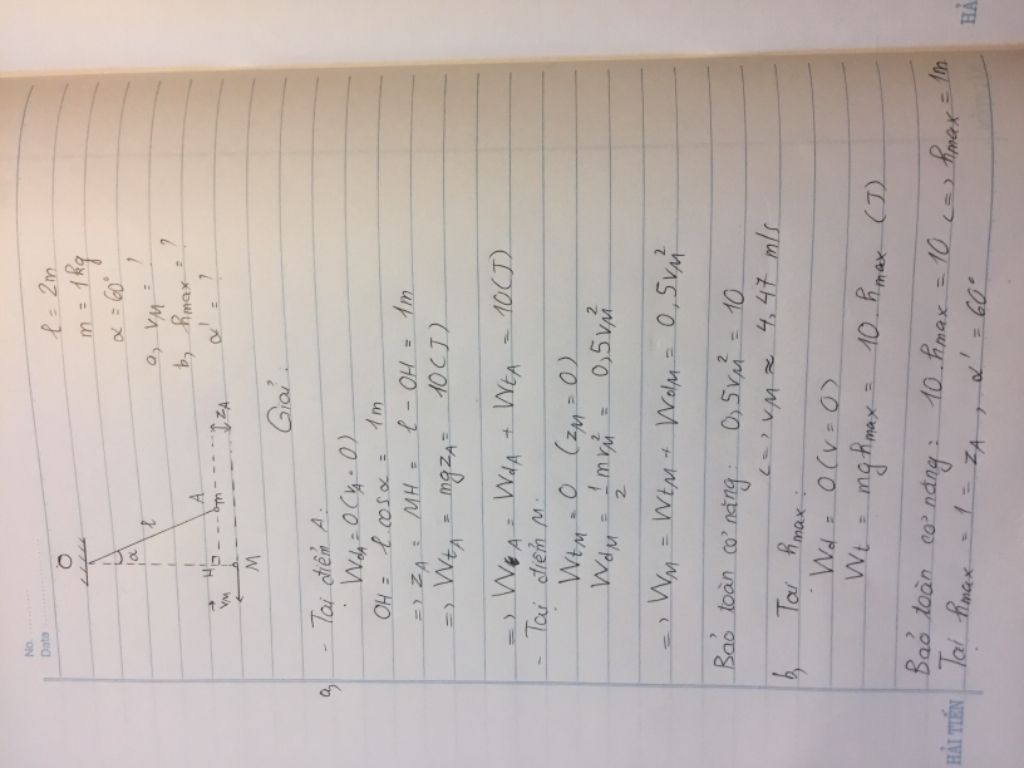 No. ............
Date ............
O
α
l
A
H
m
zA
vM
M
l = 2m
m = 1kg
α = 60°
a, vM = ?
b, hmax = ?
α' = ?
Giải:
a, - Tại điểm A:
WđA = 0 (vA = 0)
OH = l cosα = 1m
=> zA = MH = l - OH = 1m
=> WtA = mgzA = 10(J)
=> WA = WđA + WtA = 10(J)
- Tại điểm M:
WtM = 0 (zM = 0)
WđM = 1/2 mvM² = 0,5vM²
=> WM = WtM + WđM = 0,5vM²
Bảo toàn cơ năng: 0,5vM² = 10
<=> vM ≈ 4,47 m/s
b, Tại hmax:
Wđ = 0 (v = 0)
Wt = mghmax = 10.hmax (J)
Bảo toàn cơ năng: 10.hmax = 10 <=> hmax = 1m
Tại hmax = 1 = zA, α' = 60°
HẢI TIẾN
HẢ